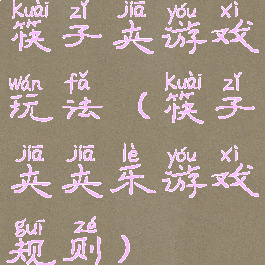 kuài zǐ jiā yóu xì
筷子夹游戏
wán fǎ kuài zǐ
玩法(筷子
jiā jiā lè yóu xì
夹夹乐游戏
guī zé
规则)